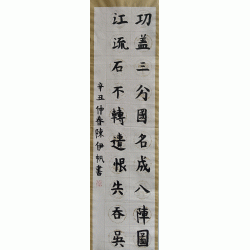 功盖三分國名成八陣圖
江流石不轉遺恨失吞吳
辛丑仲春陳伊帆書